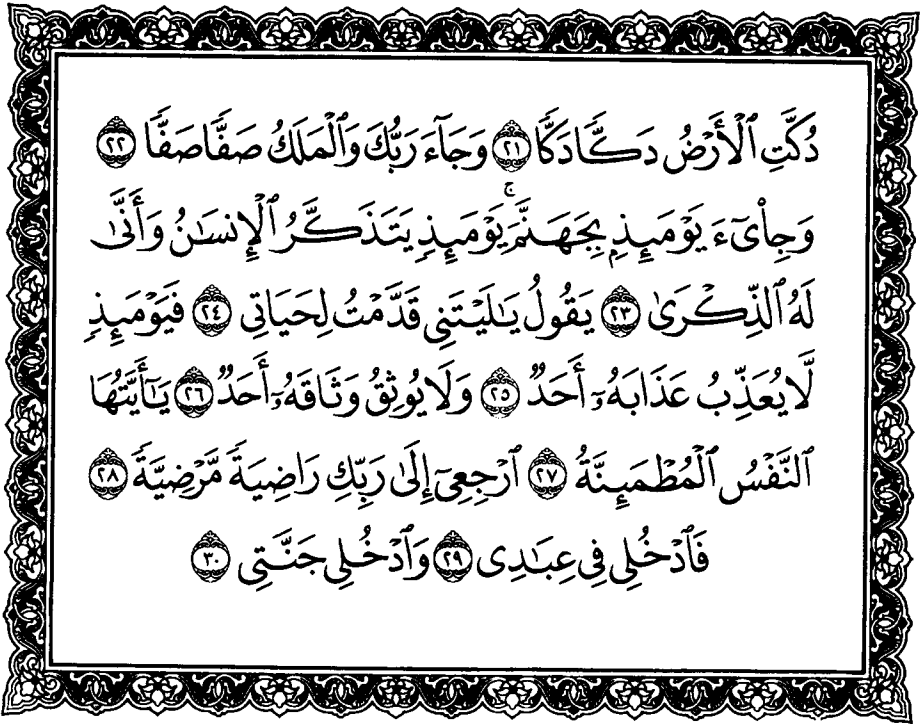 دُكَّتِ ٱلْأَرْضُ دَكًّا دَكًّا ٢١ وَجَآءَ رَبُّكَ وَٱلْمَلَكُ صَفًّا صَفًّا ٢٢
وَجِا۟ىٓءَ يَوْمَئِذٍۭ بِجَهَنَّمَ ۚ يَوْمَئِذٍ يَتَذَكَّرُ ٱلْإِنسَٰنُ وَأَنَّىٰ
لَهُ ٱلذِّكْرَىٰ ٢٣ يَقُولُ يَٰلَيْتَنِى قَدَّمْتُ لِحَيَاتِى ٢٤ فَيَوْمَئِذٍ
لَّا يُعَذِّبُ عَذَابَهُۥٓ أَحَدٌ ٢٥ وَلَا يُوثِقُ وَثَاقَهُۥٓ أَحَدٌ ٢٦ يَٰٓأَيَّتُهَا
ٱلنَّفْسُ ٱلْمُطْمَئِنَّةُ ٢٧ ٱرْجِعِىٓ إِلَىٰ رَبِّكِ رَاضِيَةً مَّرْضِيَّةً ٢٨
فَٱدْخُلِى فِى عِبَٰدِى ٢٩ وَٱدْخُلِى جَنَّتِى ٣٠